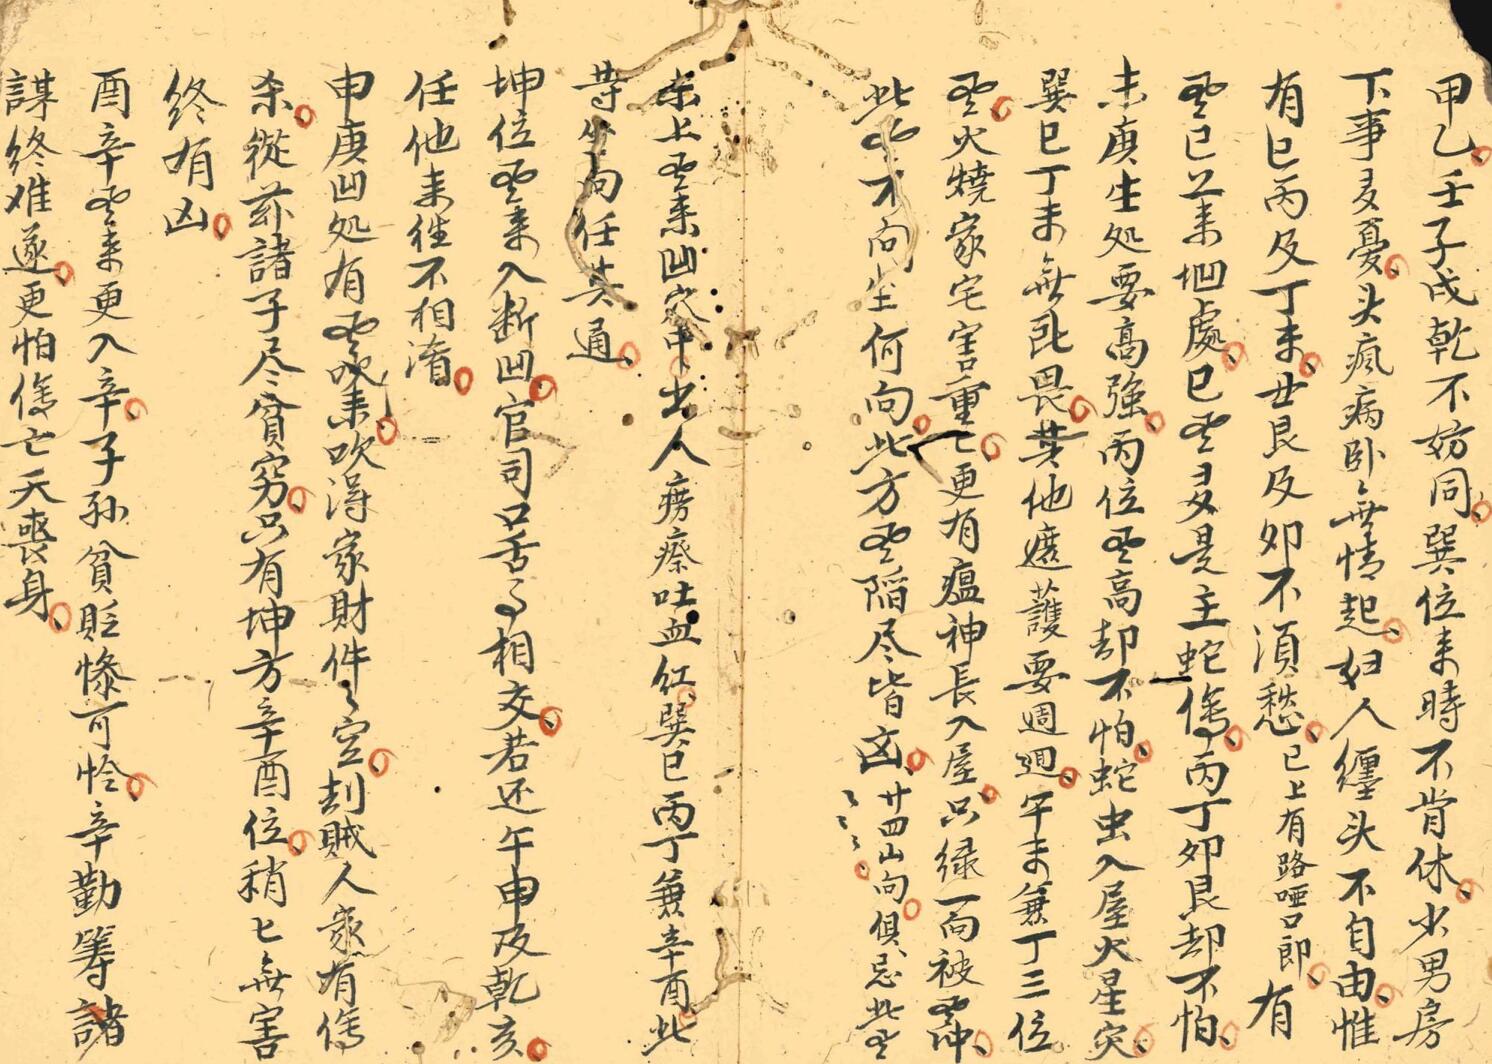 甲乙壬子戌乾不妨同巽位来時不肯休少男房
下事多憂头瘋病卧無情起妇人纏头不自由惟
有巳丙及丁未丑艮及夘不須愁已上有路哑口郎有
巳 来坳處巳 多是主蛇傷丙丁夘艮却不怕
未庚生处要高強丙位 高却不怕蛇虫入屋火星灾
巽巳丁未無所畏其他遮護要週迴平未兼丁三位
火燒家宅害重亡更有瘟神長入屋只緣一向被 冲
此 不向坐何向此方 陷尽皆凶廿四山向俱忌此
来上 来凹穴中出人痨瘵吐血红巽巳丙丁兼辛酉此
等坐向任其通
坤位 来入断凹官司口舌事相交若还午申及乾亥
任他来徃不相淆
申庚凹处有 吹来吹得家財件々空刦賊人家有傷
杀從兹諸子尽貧穷只有坤方辛酉位稍匕無害
終有凶
酉辛 来更入辛子孙貧贬惨可怜辛勤筹諸
謀終难遂更怕傷亡夭喪身